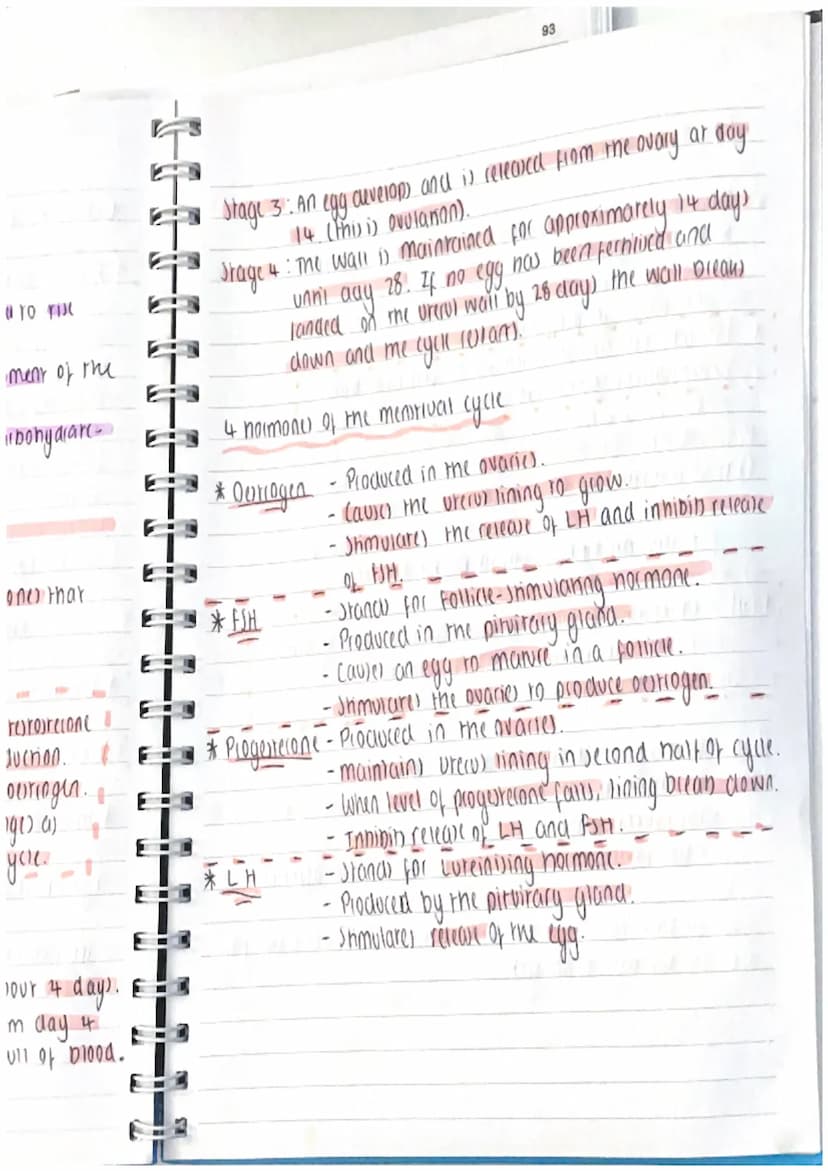 93
a to rise
ment of the
rbohydrate-
ones that
testosterone
duction.
oestrogen.
nges as
ycle.
bout 4 days.
m day 4
ull of blood.
Stage 3: An egg develops and is released from the ovary at day
14. (this is ovulation).
Stage 4: The wall is maintained for approximately 14 days
until day 28. If no egg has been fertilised and
landed on the uterus wall by 28 days the wall breaks
down and the cycle restarts.
4 hormones of the menstrual cycle
* Oestrogen - Produced in the ovaries.
- Causes the uterus lining to grow.
- Stimulates the release of LH and inhibits release
of FSH.
* FSH - Stands for Follicle-stimulating hormone.
- Produced in the pituitary gland.
- Causes an egg to mature in a follicle.
- Stimulates the ovaries to produce oestrogen.
* Progesterone - Produced in the ovaries.
- Maintains uterus lining in second half of cycle.
- When level of progesterone falls, lining breaks down.
- Inhibits release of LH and FSH.
* LH - Stands for Luteinising hormone.
- Produced by the pituitary gland.
- Stimulates release of the egg.